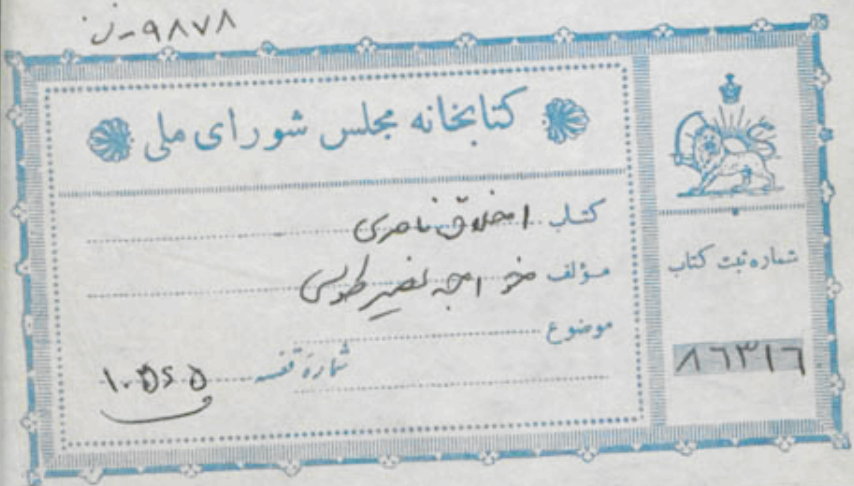 ۹۸۷۸-ف
کتابخانه مجلس شورای ملی
کتاب اخلاق ناصری
مؤلف خواجه نصیر طوسی
موضوع
شماره قفسه ۱۰۵۶۵
شماره ثبت کتاب
۸۶۳۱۶